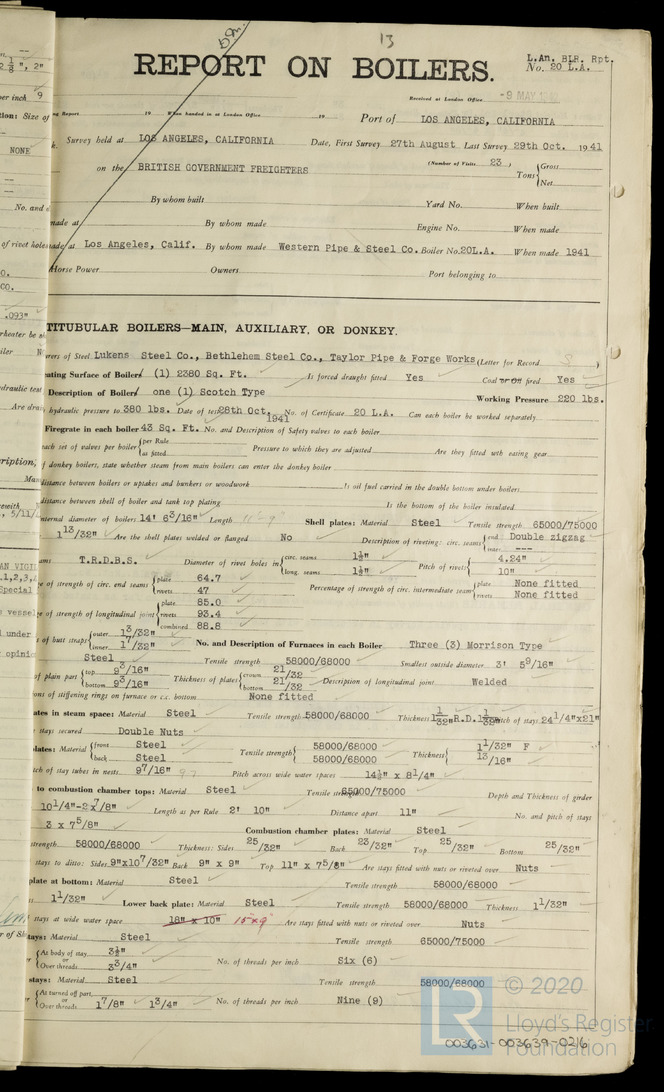 13
L.An. BLR. Rpt.
REPORT ON BOILERS. No. 20 L.A.
Received at London Office -9 MAY
Report 19 When handed in at London Office 19 Port of LOS ANGELES, CALIFORNIA
Survey held at LOS ANGELES, CALIFORNIA Date, First Survey 27th August Last Survey 29th Oct. 1941
(Number of Visits 23 )
on the BRITISH GOVERNMENT FREIGHTERS Tons { Gross Net
By whom built Yard No. When built
made at By whom made Engine No. When made
made at Los Angeles, Calif. By whom made Western Pipe & Steel Co. Boiler No. 20L.A. When made 1941
Horse Power Owners Port belonging to
TITUBULAR BOILERS—MAIN, AUXILIARY, OR DONKEY.
rers of Steel Lukens Steel Co., Bethlehem Steel Co., Taylor Pipe & Forge Works (Letter for Record )
ating Surface of Boilers (1) 2380 Sq. Ft. Is forced draught fitted Yes Coal or oil fired Yes
Description of Boilers one (1) Scotch Type Working Pressure 220 lbs.
hydraulic pressure to 380 lbs. Date of test 28th Oct. 1941 No. of Certificate 20 L.A. Can each boiler be worked separately
Firegrate in each boiler 43 Sq. Ft. No. and Description of Safety valves to each boiler
each set of valves per boiler { per Rule as fitted Pressure to which they are adjusted Are they fitted with easing gear
f donkey boilers, state whether steam from main boilers can enter the donkey boiler
distance between boilers or uptakes and bunkers or woodwork Is oil fuel carried in the double bottom under boilers
distance between shell of boiler and tank top plating Is the bottom of the boiler insulated
nternal diameter of boilers 14' 6 3/16" Length Shell plates: Material Steel Tensile strength 65000/75000
1 13/32" Are the shell plates welded or flanged No Description of riveting: circ. seams { end Double zigzag inter. ---
ams T.R.D.B.S. Diameter of rivet holes in { circ. seams 1½" long. seams 1½" Pitch of rivets { 4.24" 10"
e of strength of circ. end seams { plate 64.7 rivets 47 Percentage of strength of circ. intermediate seam { plate None fitted rivets None fitted
ge of strength of longitudinal joint { plate 85.0 rivets 93.4 combined 88.8
s of butt straps { outer 1 3/32" inner 1 7/32" No. and Description of Furnaces in each Boiler Three (3) Morrison Type
Steel Tensile strength 58000/68000 Smallest outside diameter 3' 5 9/16"
of plain part { top 9 3/16" bottom 9 3/16" Thickness of plates { crown 21/32 bottom 21/32 Description of longitudinal joint Welded
ons of stiffening rings on furnace or c.c. bottom None fitted
lates in steam space: Material Steel Tensile strength 58000/68000 Pitch of stays 24 1/4"x21"
stays secured Double Nuts
plates: Material { front Steel back Steel Tensile strength { 58000/68000 58000/68000 Thickness { 1 1/32" F 13/16"
tch of stay tubes in nests 9 7/16" Pitch across wide water spaces 14½" x 8 1/4"
to combustion chamber tops: Material Steel Tensile strength 65000/75000 Depth and Thickness of girder
10 1/4"-2x7/8" Length as per Rule 2' 10" Distance apart 11" No. and pitch of stays
3 x 7 5/8" Combustion chamber plates: Material Steel
strength 58000/68000 Thickness: Sides 25/32" Back 23/32" Top 25/32" Bottom 25/32"
stays to ditto: Sides 9"x10 7/32" Back 9" x 9" Top 11" x 7 5/8" Are stays fitted with nuts or riveted over Nuts
plate at bottom: Material Steel Tensile strength 58000/68000
1 1/32" Lower back plate: Material Steel Tensile strength 58000/68000 Thickness 1 1/32"
stays at wide water space 18" x 10" 15"x9" Are stays fitted with nuts or riveted over Nuts
tays: Material Steel Tensile strength 65000/75000
{ At body of stay or Over threads 3½" 3 3/4" No. of threads per inch Six (6)
stays: Material Steel Tensile strength 58000/68000
{ At turned off part or Over threads 1 7/8" 1 3/4" No. of threads per inch Nine (9)
© 2020
LR Lloyd's Register
Foundation
003631-003639-0216